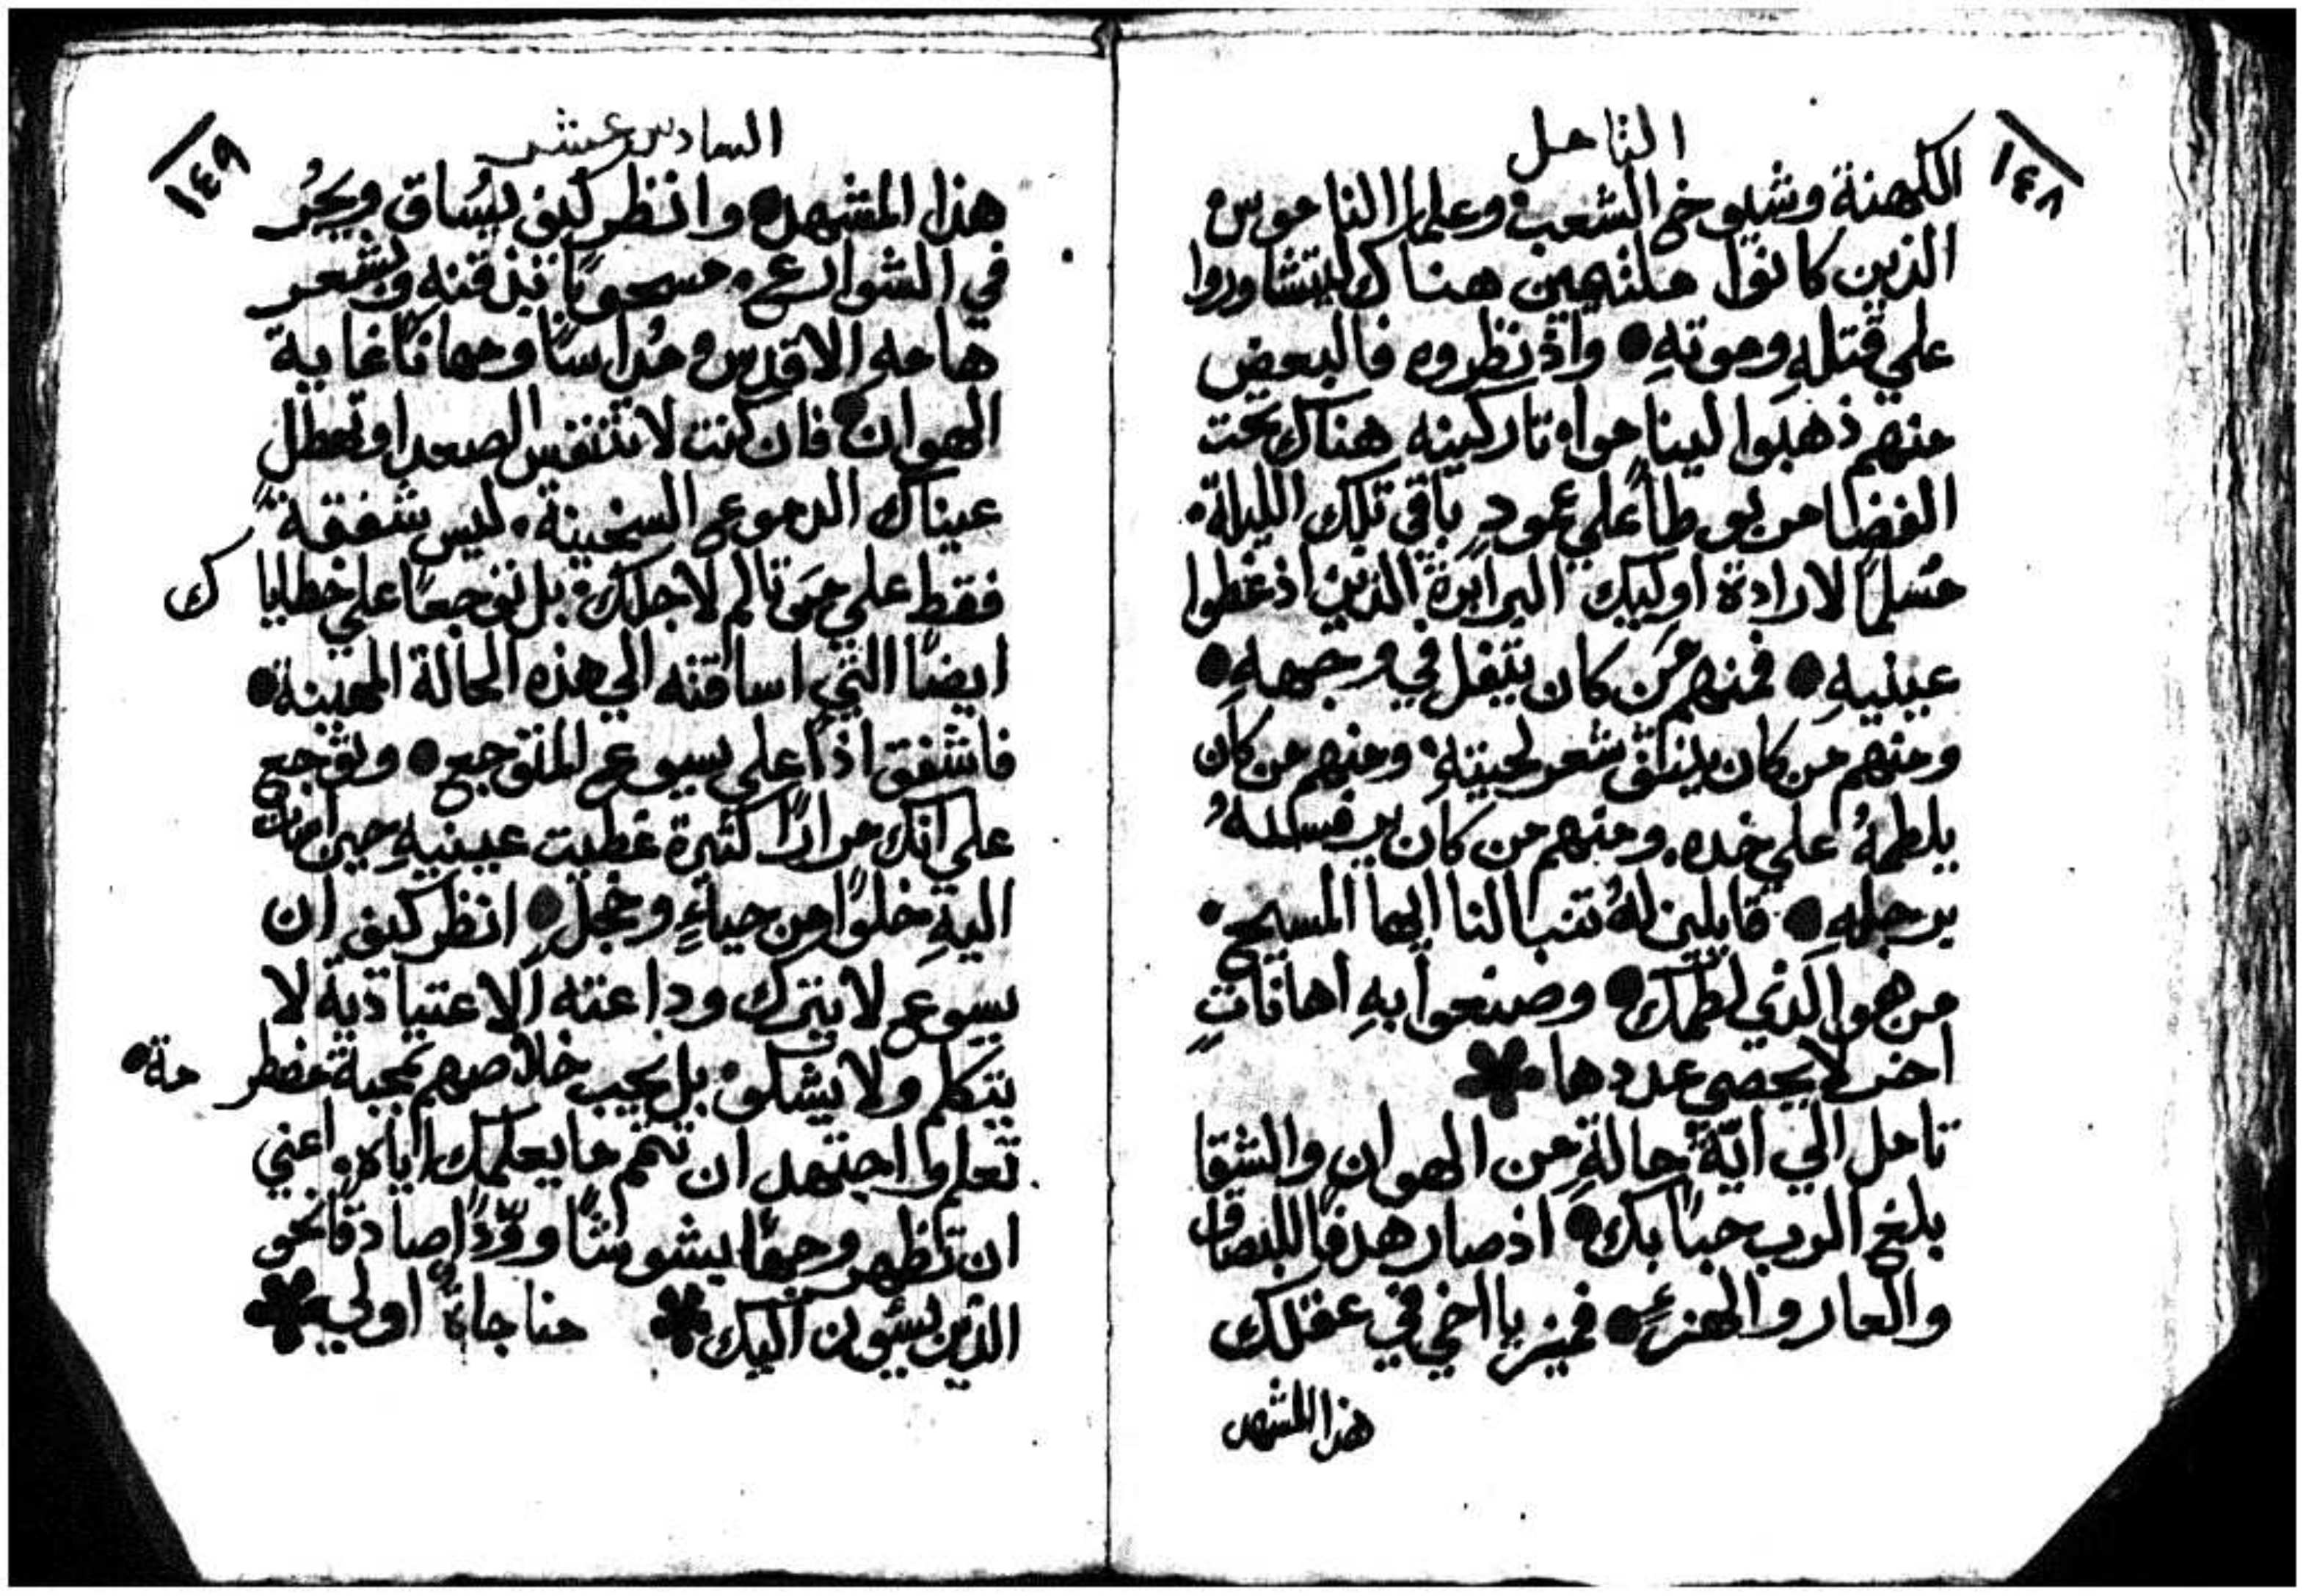 التامل
١٤٨
الكهنة وشيوخ الشعب وعلما الناموس
الذين كانوا ملتهمين هناك ليتشاوروا
علي قتله وموته ● واذ نظروه فالبعض
منهم ذهبوا ليناموا، تاركينه هناك تحت
الفضا مربوطاً علي عمودٍ باقي تلك الليلة.
مسلماً لارادة اوليك البرابرة الذين اذ غطوا
عينيهِ ● فمنهم مَن كان يتفل في وجههِ ●
ومنهم من كان ينتف شعر لحيتهِ. ومنهم من كان
يلطمهُ علي خده. ومنهم من كان يرفسهُ
برجلهِ ● قايلين لهُ تنبا لنا ايها المسيح.
من هو الذي لطمك ● وصنعوا بهِ اهاناتٍ
اخر لا يحصي عددها ✽
تامل الي ايّة حالةٍ من الهوان والشقا
بلغ الرب حباً بك ● اذ صار هدفاً للبصاق
والعار والهزءِ ● فميز يا اخي في عقلك
هذا المشهد
السادس عشر
١٤٩
هذا المشهد ● وانظر كيف يُساق ويجُر
في الشوارع. مسحوباً بذقنه وبشعر
هامهِ الاقدس، مُداساً ومهاناً غاية
الهوان ● فان كنت لا تتنفس الصعدا وتهطل
عيناك الدموع السخينة. ليس شفقةً
فقط علي مَن تالم لاجلك. بل توجعاً علي خطاياك
ايضاً التي اساقته الي هذه الحالة المهينة ●
فاشفق اذاً علي يسوع المتوجع ● وتوجع
علي انك مراراً كثيرة غطيت عينيهِ حين اهنت
اليهِ خلوًا من حياءٍ وخجلٍ ● انظر كيف ان
يسوع لا يترك وداعته الاعتياديّة لا
يتكلم ولا يشكو. بل يحب خلاصهم بمحبة مضطرمة ●
تعلم واجتهد ان تتمم ما يعلمك اياه. اعني
ان تظهر وجهاً بشوشاً وودّاً صادقاً نحو
الذين يسيون اليك ✽ مناجاةٌ اولي ✽